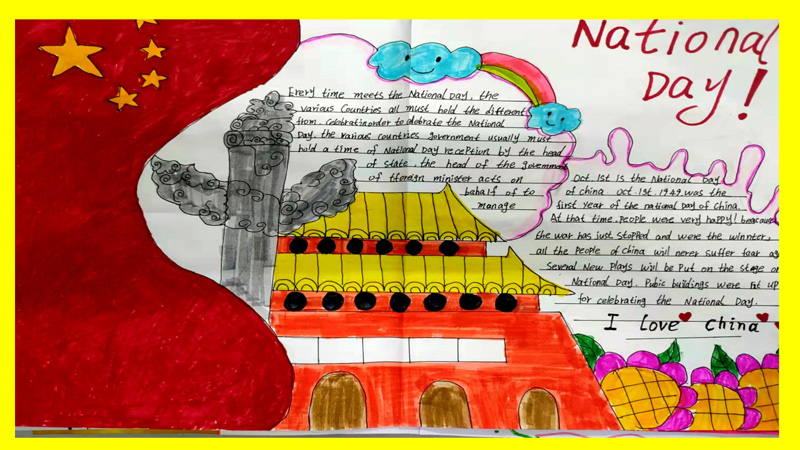 National
Day!
Every time meets the National Day, the
various Countries all must hold the different
from. Celebratiaorder to delebrate the National
Day. the various countries government usually must
hold a time of National Day reception by the head
of state. the head of the governmem
of tforeign minister acts on
behalf of to
manage
Oct. 1st is the National Day
of China Oct. 1st. 1949. was the
first Year of the national Day of China.
At that time. People were very happy! beacause
the war has just stopped and were the winnter,
all the People of China will nerer suffer tear ag
Several New Plays will be Put on the stage on
National Day. Pubic buildings were lit up
for celebrating the National Day.
I Love China